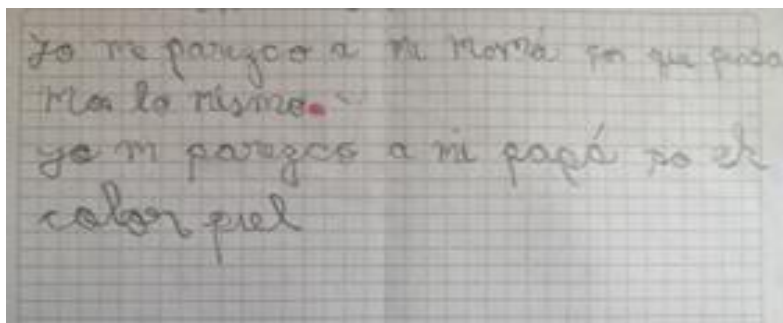 Yo me parezco a mi mamá por que pensa
mos lo mismo.
yo m parezco a mi papá po el
color piel